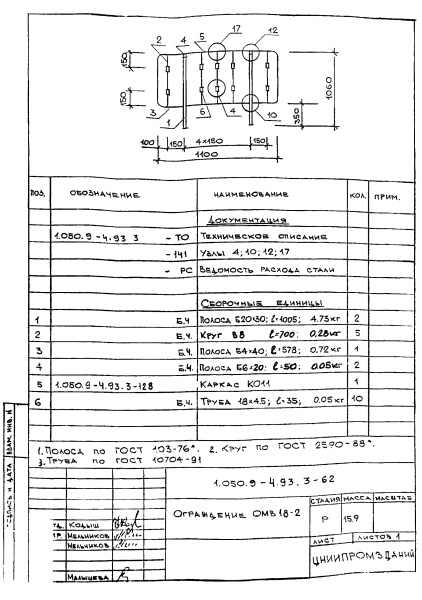 17
12
2
4
5
150
150
1060
350
3
1
6
4
10
100
150
4×150
150
1100
ПОЗ. ОБОЗНАЧЕНИЕ НАИМЕНОВАНИЕ КОЛ. ПРИМ.
ДОКУМЕНТАЦИЯ
1.050.9-4.93 3 - ТО ТЕХНИЧЕСКОЕ ОПИСАНИЕ
-141 УЗЛЫ 4; 10; 12; 17
- РС ВЕДОМОСТЬ РАСХОДА СТАЛИ
СБОРОЧНЫЕ ЕДИНИЦЫ
1 Б.Ч. ПОЛОСА Б20×30; ℓ=1005; 4.73кг 2
2 Б.Ч. КРУГ В8 ℓ=700; 0,28кг 5
3 Б.Ч. ПОЛОСА Б4×40; ℓ=578; 0.72кг 1
4 Б.Ч. ПОЛОСА Б6×20; ℓ=50; 0.05кг 2
5 1.050.9-4.93.3-128 КАРКАС КО11 1
6 Б.Ч. ТРУБА 18×4.5; ℓ=35; 0.05кг 10
1. ПОЛОСА ПО ГОСТ 103-76*. 2. КРУГ ПО ГОСТ 2590-88*.
3. ТРУБА ПО ГОСТ 10704-91
1.050.9-4.93.3-62
ОГРАЖДЕНИЕ ОМВ18-2
СТАДИЯ МАССА МАСШТАБ
Р 15,9
ЛИСТ ЛИСТОВ 1
ЦНИИПРОМЗДАНИЙ
КОДЫШ
МЕЛЬНИКОВ
МЕЛЬНИКОВ
МАЛЫШЕВА
ПОДПИСЬ И ДАТА ВЗАМ. ИНВ. №